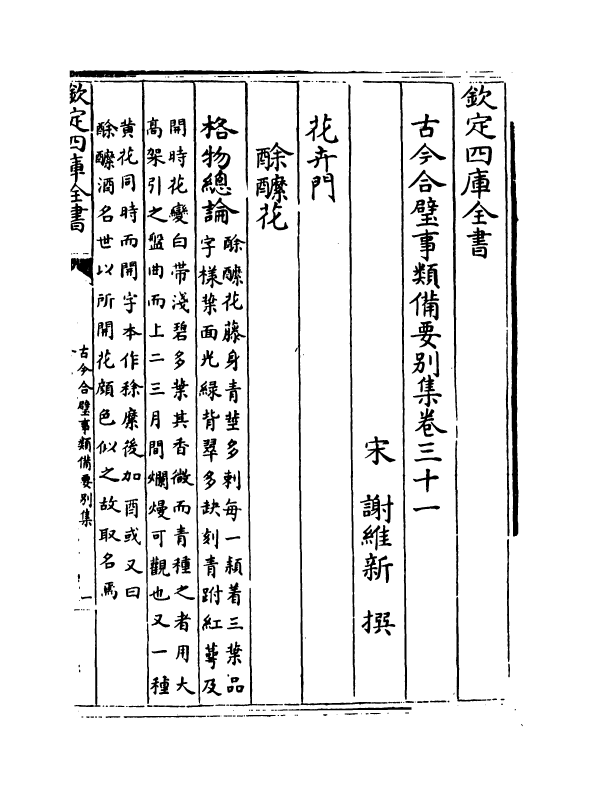 欽定四庫全書
古今合璧事類備要別集卷三十一
宋 謝維新 撰
花卉門
酴醾花
格物總論
酴醾花藤身青莖多刺每一頴着三葉品
字様葉面光緑背翠多缺刻青跗紅蕚及
開時花變白帶淺碧多葉其香微而青種之者用大
高架引之盤曲而上二三月間爛熳可觀也又一種
黄花同時而開字本作稌縻後加酉或又曰
酴醾酒名世以所開花顔色似之故取名焉
欽定四庫全書
古今合璧事類備要別集
一